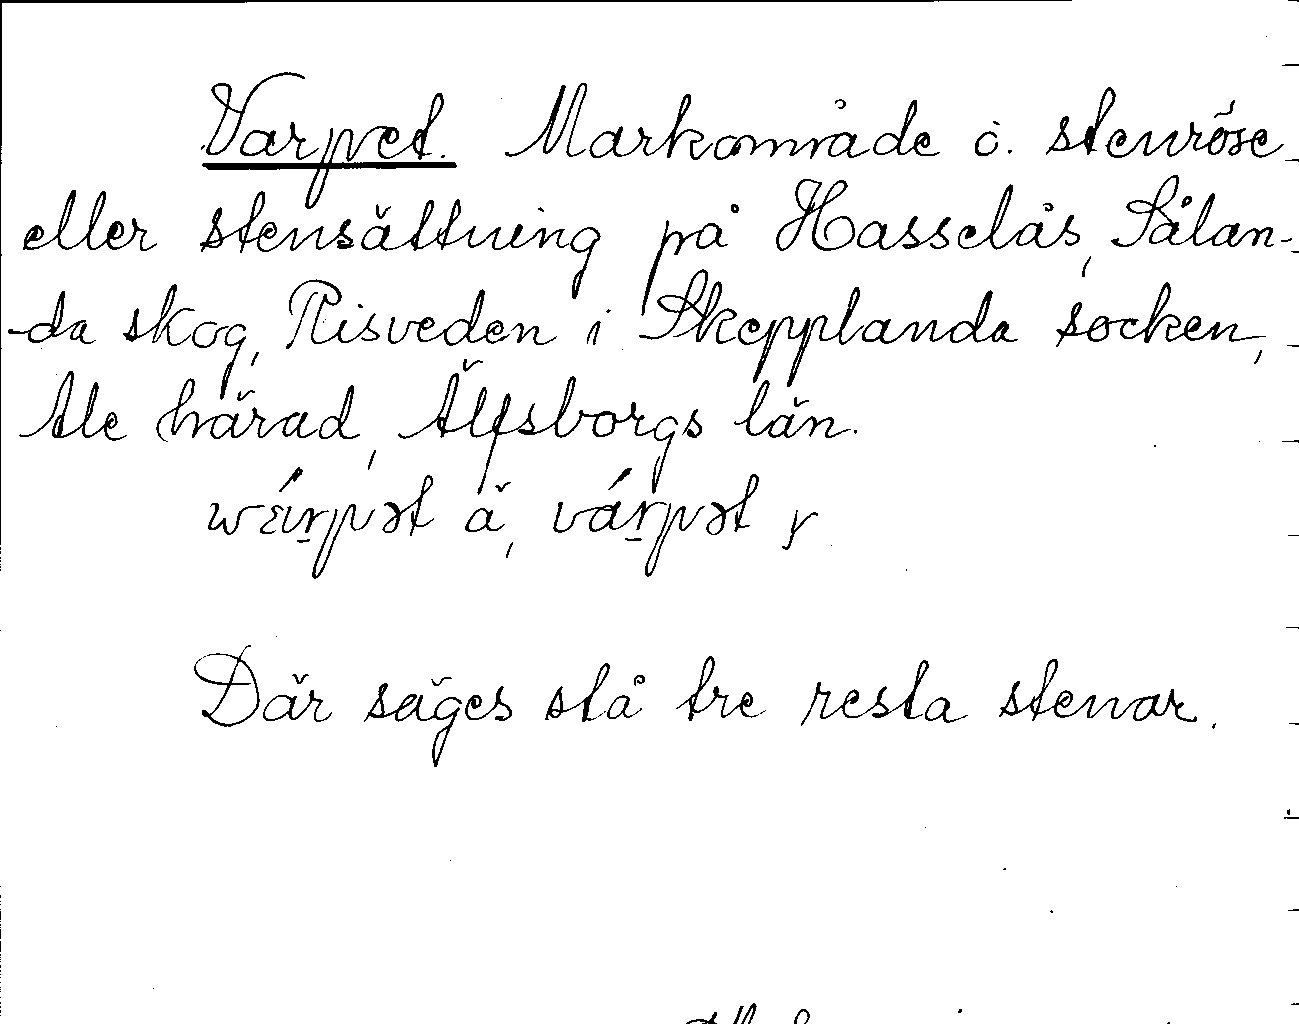 Varpet. Markområde o. stenröse
eller stensättning på Hasselås, Sålan-
-da skog, Risveden i Skepplanda socken,
Ale härad, Älfsborgs län.
ä, y
Där säges stå tre resta stenar.